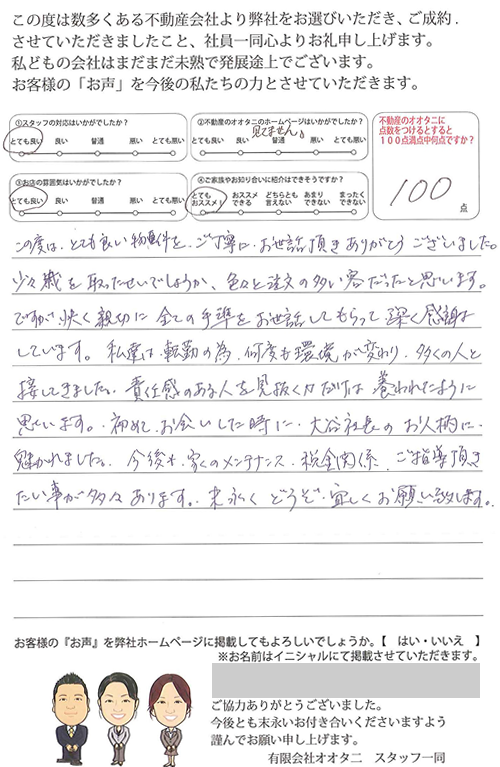 この度は数多くある不動産会社より弊社をお選びいただき、ご成約.
させていただきましたこと、社員一同心よりお礼申し上げます。
私どもの会社はまだまだ未熟で発展途上でございます。
お客様の「お声」を今後の私たちの力とさせていただきます。
①スタッフの対応はいかがでしたか？
とても良い 良い 普通 悪い とても悪い
②不動産のオオタニのホームページはいかがでしたか？
見てません。
とても良い 良い 普通 悪い とても悪い
③お店の雰囲気はいかがでしたか？
とても良い 良い 普通 悪い とても悪い
④ご家族やお知り合いに紹介はできそうですか？
とても オススメ！ オススメ できる どちらとも 言えない あまり できない まったく できない
不動産のオオタニに
点数をつけるとすると
１００点満点中何点ですか？
100
点
この度は、とても良い物件を、ご丁寧に、お世話頂きありがとうございました。
少々歳を取ったせいでしょうか、色々と注文の多い客だったと思います。
ですが快く親切に全ての手準をお世話してもらって深く感謝
しています。私達は転勤の為、何度も環境が変わり、多くの人と
接してきました。責任感のある人を見抜く力だけは養われたように
思います。初めてお会いした時に、大谷社長のお人柄に、
魅かれました。今後も、家のメンテナンス、税金関係、ご指導頂き
たい事が多々あります。末永くどうぞ、宜しくお願い致します。
お客様の『お声』を弊社ホームページに掲載してもよろしいでしょうか。【　はい・いいえ　】
※お名前はイニシャルにて掲載させていただきます。
ご協力ありがとうございました。
今後とも末永いお付き合いくださいますよう
謹んでお願い申し上げます。
有限会社オオタニ　スタッフ一同